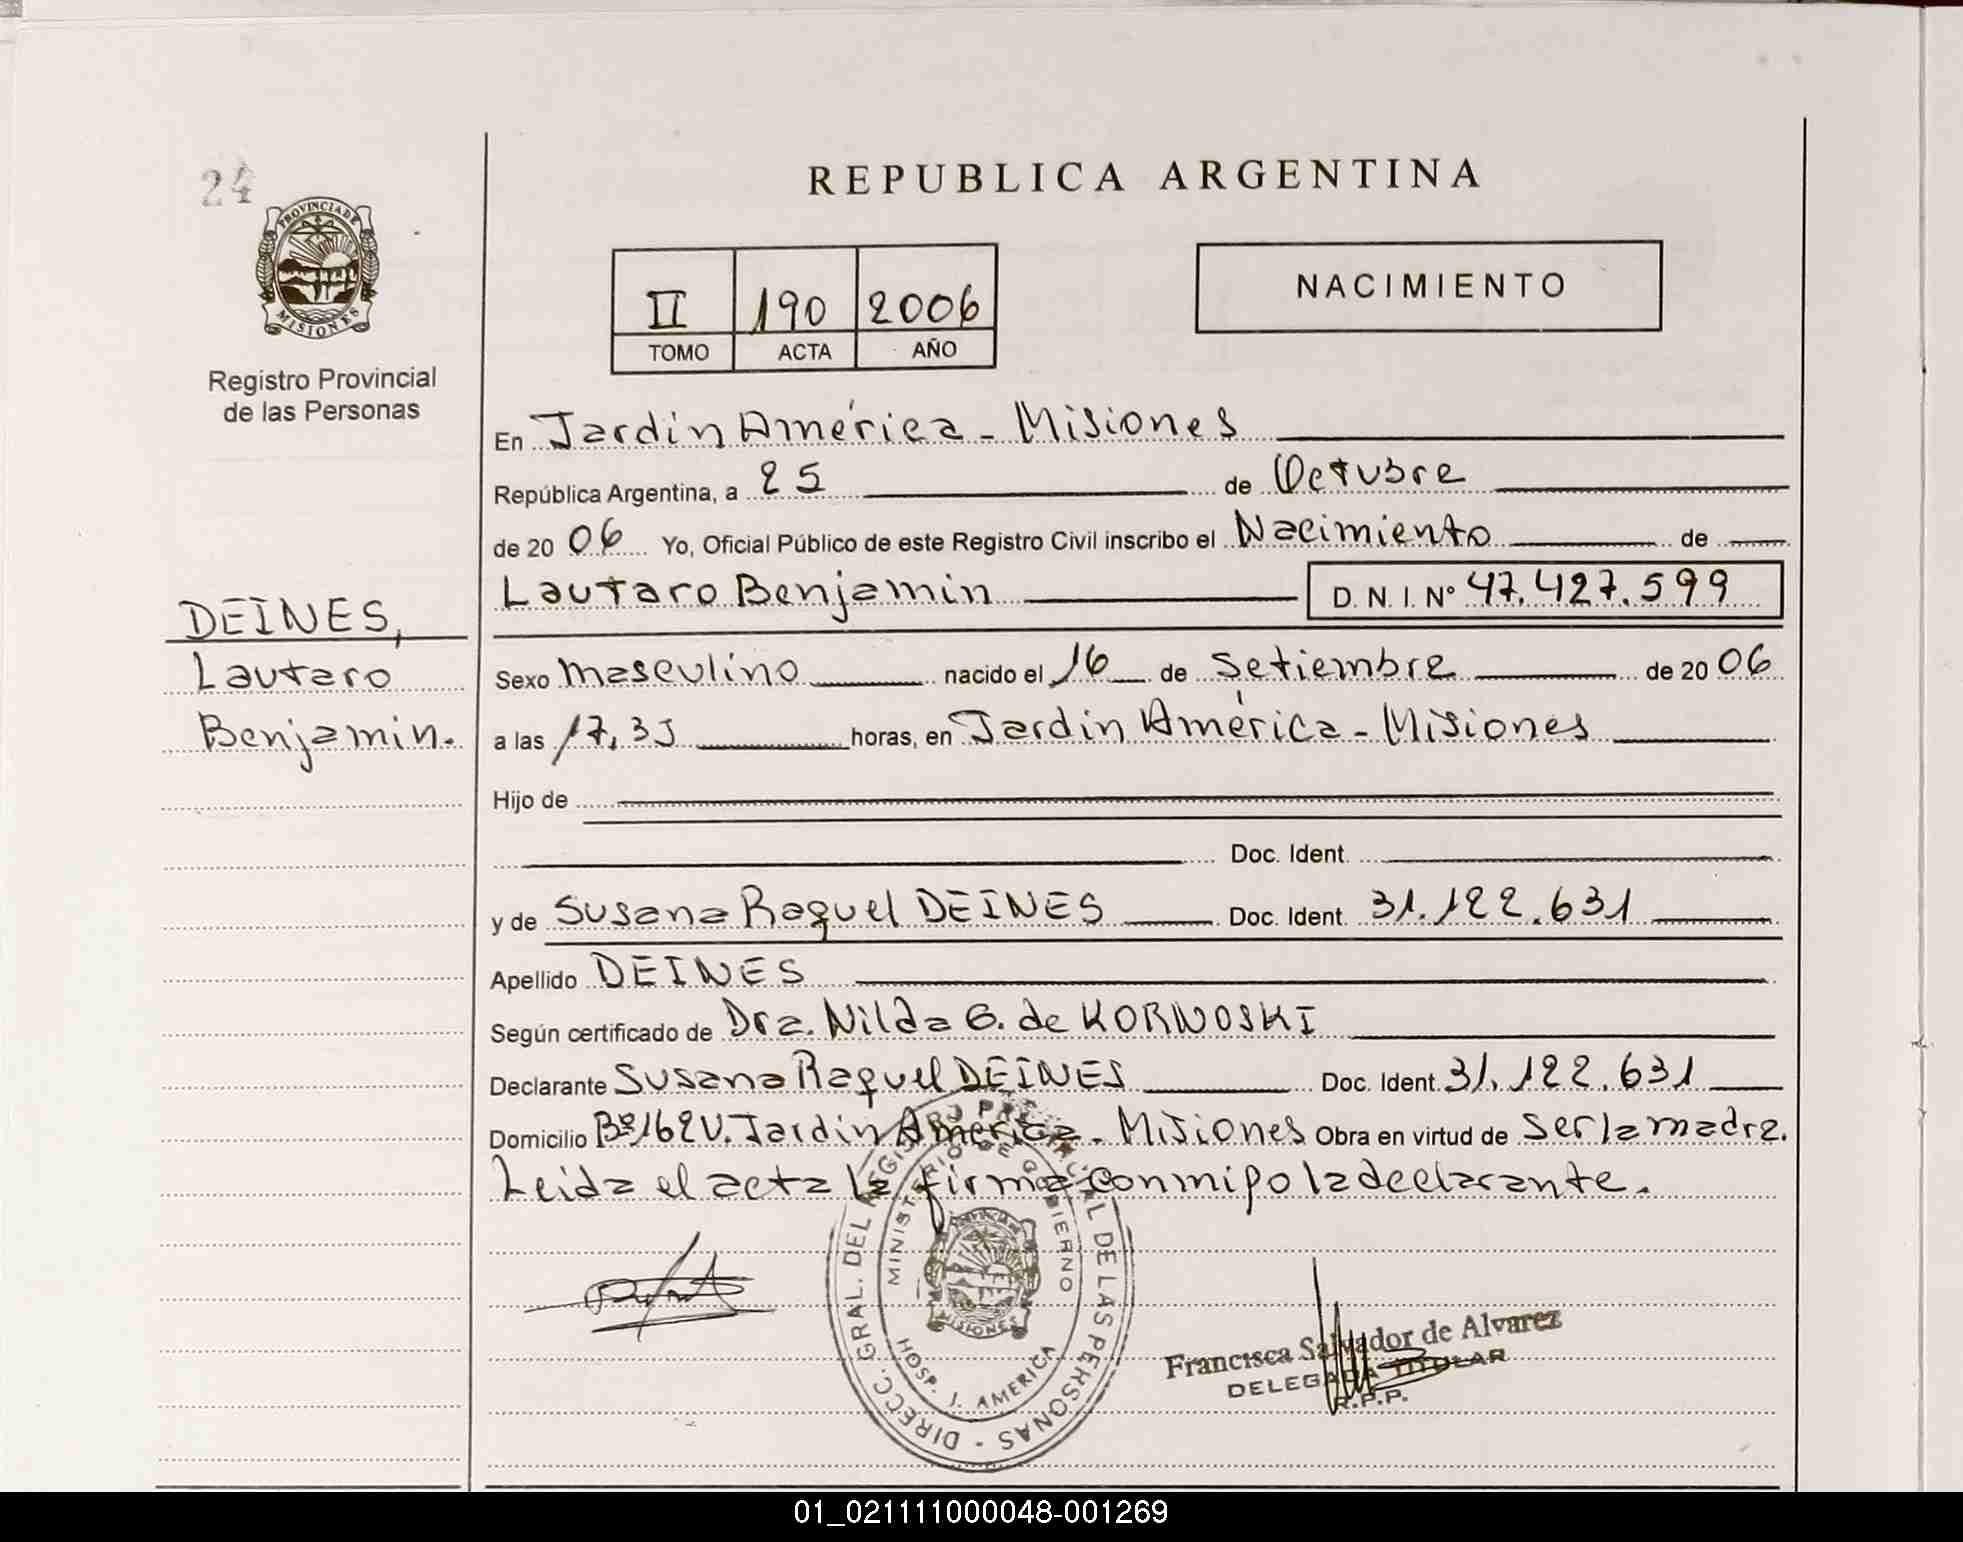 24
PROVINCIA DE
MISIONES
Registro Provincial
de las Personas
DEINES,
Lautaro
Benjamin.
REPUBLICA ARGENTINA
II 190 2006
TOMO ACTA AÑO
NACIMIENTO
En Jardin América - Misiones
República Argentina, a 25 de Octubre
de 2006 Yo, Oficial Público de este Registro Civil inscribo el Nacimiento de
Lautaro Benjamin D. N. I. N° 47.427.599
Sexo masculino nacido el 16 de Setiembre de 2006
a las 17,35 horas, en Jardin América - Misiones
Hijo de
Doc. Ident.
y de Susana Raquel DEINES Doc. Ident. 31.122.631
Apellido DEINES
Según certificado de Dra. Nilda G. de KORNOSKI
Declarante Susana Raquel DEINES Doc. Ident. 31.122.631
Domicilio Bº 162 V. Jardin América - Misiones Obra en virtud de ser la madre.
Leida el acta la firma conmigo la declarante.
DIRECC. GRAL. DEL REGISTRO PROVINCIAL DE LAS PERSONAS -
MINISTERIO DE GOBIERNO
MISIONES
HOSP. J. AMERICA
Francisca Salvador de Alvarez
DELEGADA TITULAR
R.P.P.
01_021111000048-001269